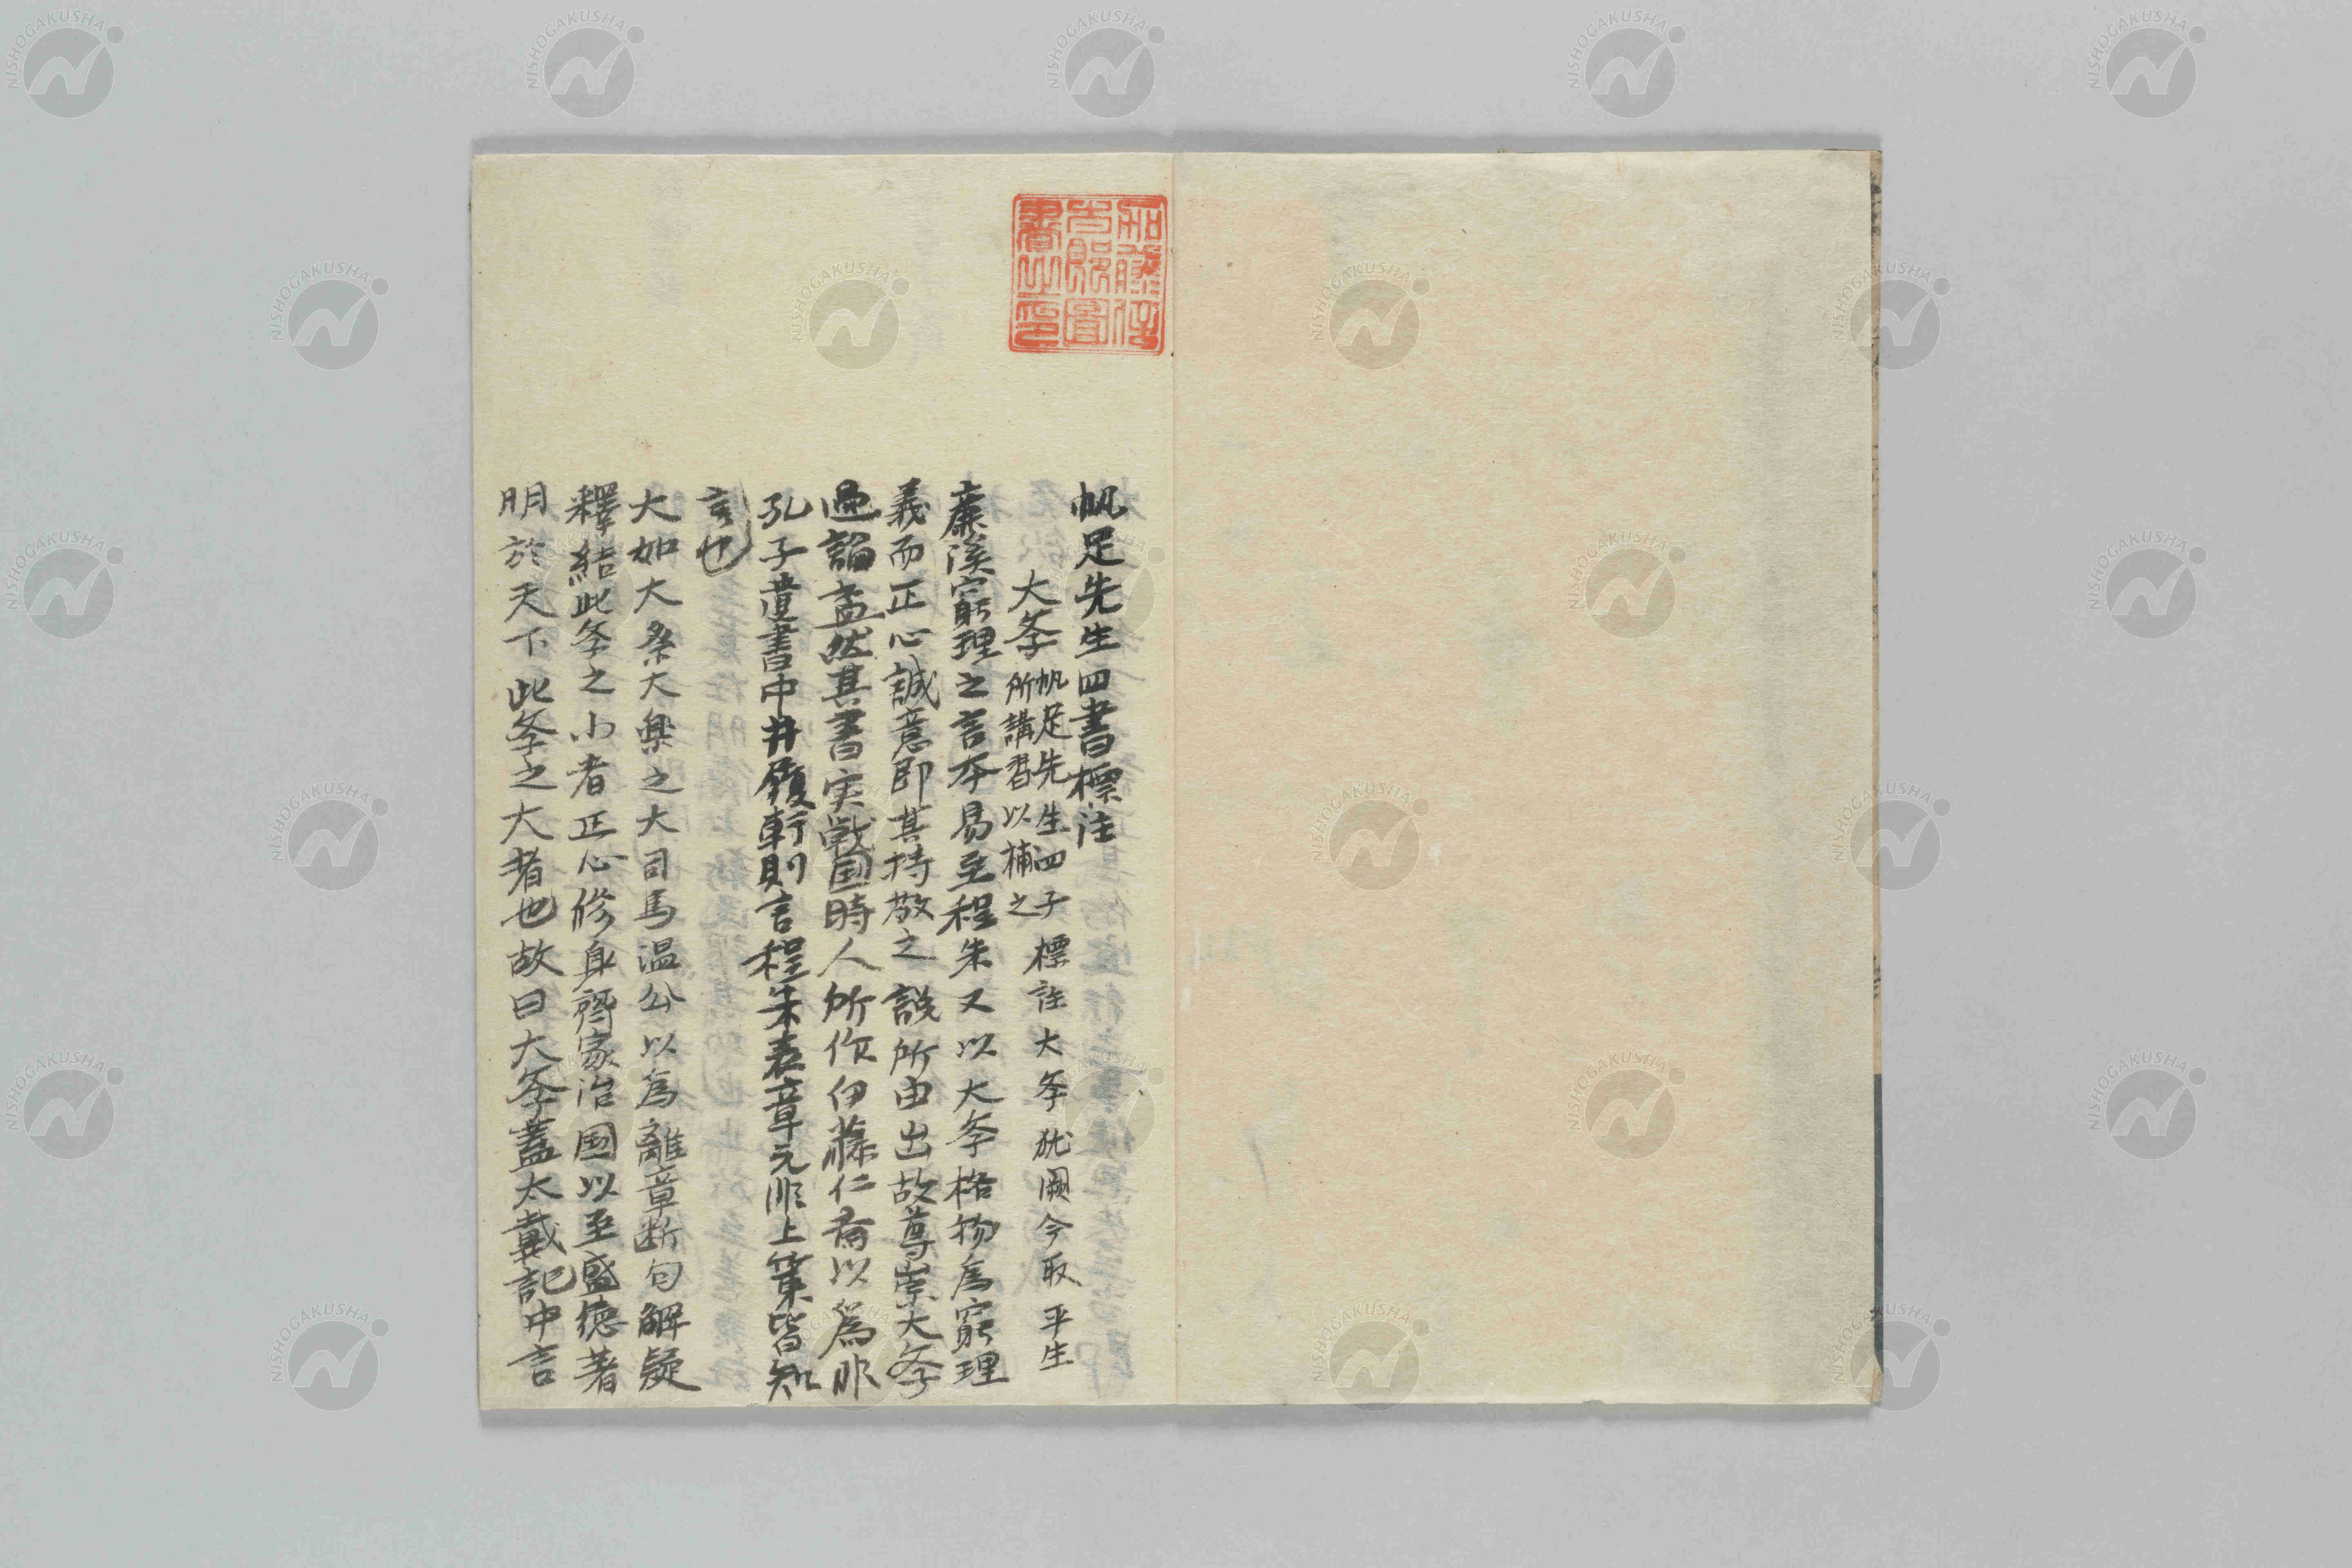 帆足先生四書標注
大学 帆足先生四子標註大学猶闕今取平生
所講習以補之
廉溪窮理之言本易至程朱又以大学格物為窮理
義而正心誠意即其持敬之説所由出故尊崇大学
過語孟然其書実戦国時人所作伊藤仁斎以為非
孔子遺書中井履軒則言程朱表章元非上策皆知
言也
大如大祭大楽之大司馬温公以為離章断句解疑
釋結此学之小者正心修身齊家治国以至盛徳著
明於天下此学之大者也故曰大学蓋太戴記中言
NISHOGAKUSHA